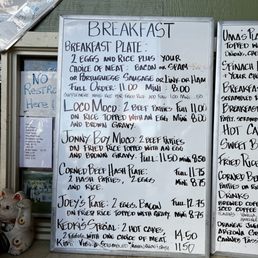 BREAKFAST
BREAKFAST PLATE:
2 EGGS AND RICE PLUS YOUR
CHOICE OF MEAT: BACON OR SPAM
OR PORTUGUESE SAUSAGE OR LINK OR HAM
FULL ORDER: 11.00 MINI: 8.00
LOCO MOCO: 2 BEEF PATTIES FULL 11.00
ON RICE TOPPED WITH AN EGG MINI 8.00
AND BROWN GRAVY.
JONNY BOY MOCO: 2 BEEF PATTIES
ON FRIED RICE TOPPED WITH AN EGG
AND BROWN GRAVY. FULL: 11.50 MINI: 8.50
CORNED BEEF HASH PLATE: FULL: 11.75
2 HASH PATTIES, 2 EGGS MINI: 8.75
AND RICE.
JOEY'S PLATE: 2 EGGS, BACON FULL: 12.75
ON FRIED RICE TOPPED WITH GRAVY MINI: 8.75
SPECIAL: 2 HOT CAKES,
2 EGGS WITH ONE CHOICE OF MEAT. 14.50
11.50
NO
HERE
UMA'S PLA
TOPPED WITH
SPINACH
BREAKFAST
HOT CA
SWEET B
FRIED RICE
CORNED B
DRINKS
ORANGE JUI